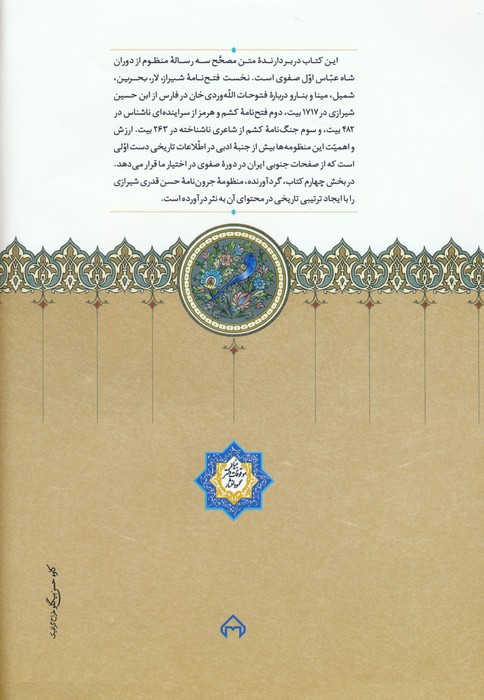 این کتاب دربردارندهٔ متن مصحَّح سه رسالهٔ منظوم از دوران
شاه عبّاس اوّل صفوی است. نخست فتح‌نامهٔ شیراز، لار، بحرین،
شمیل، مینا و بنارو دربارهٔ فتوحات الله‌وردی خان در فارس از ابن حسین
شیرازی در ۱۷۱۷ بیت، دوم فتح‌نامهٔ کشم و هرمز از سراینده‌ای ناشناس در
۴۸۲ بیت، و سوم جنگ‌نامهٔ کشم از شاعری ناشناخته در ۲۶۳ بیت. ارزش
و اهمیّت این منظومه‌ها بیش از جنبهٔ ادبی در اطّلاعات تاریخی دست اوّلی
است که از صفحات جنوبی ایران در دورهٔ صفوی در اختیار ما قرار می‌دهد.
در بخش چهارم کتاب، گردآورنده، منظومهٔ جرون‌نامهٔ حسن قدری شیرازی
را با ایجاد ترتیبی تاریخی در محتوای آن به نثر درآورده است.
موقوفات دکتر
محمود افشار
کاوه حسن‌بیگلو طراح گرافیک